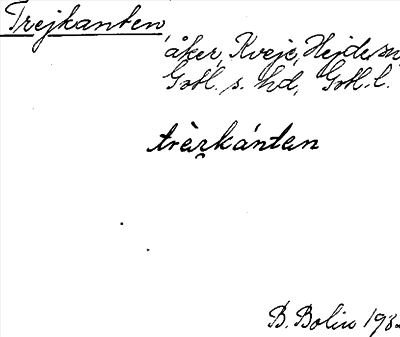 Trejkanten,
åker, Kveje, Hejde sn,
Gotl. s. hd, Gotl. l.
trèi̯kánten
B. Bolin 193